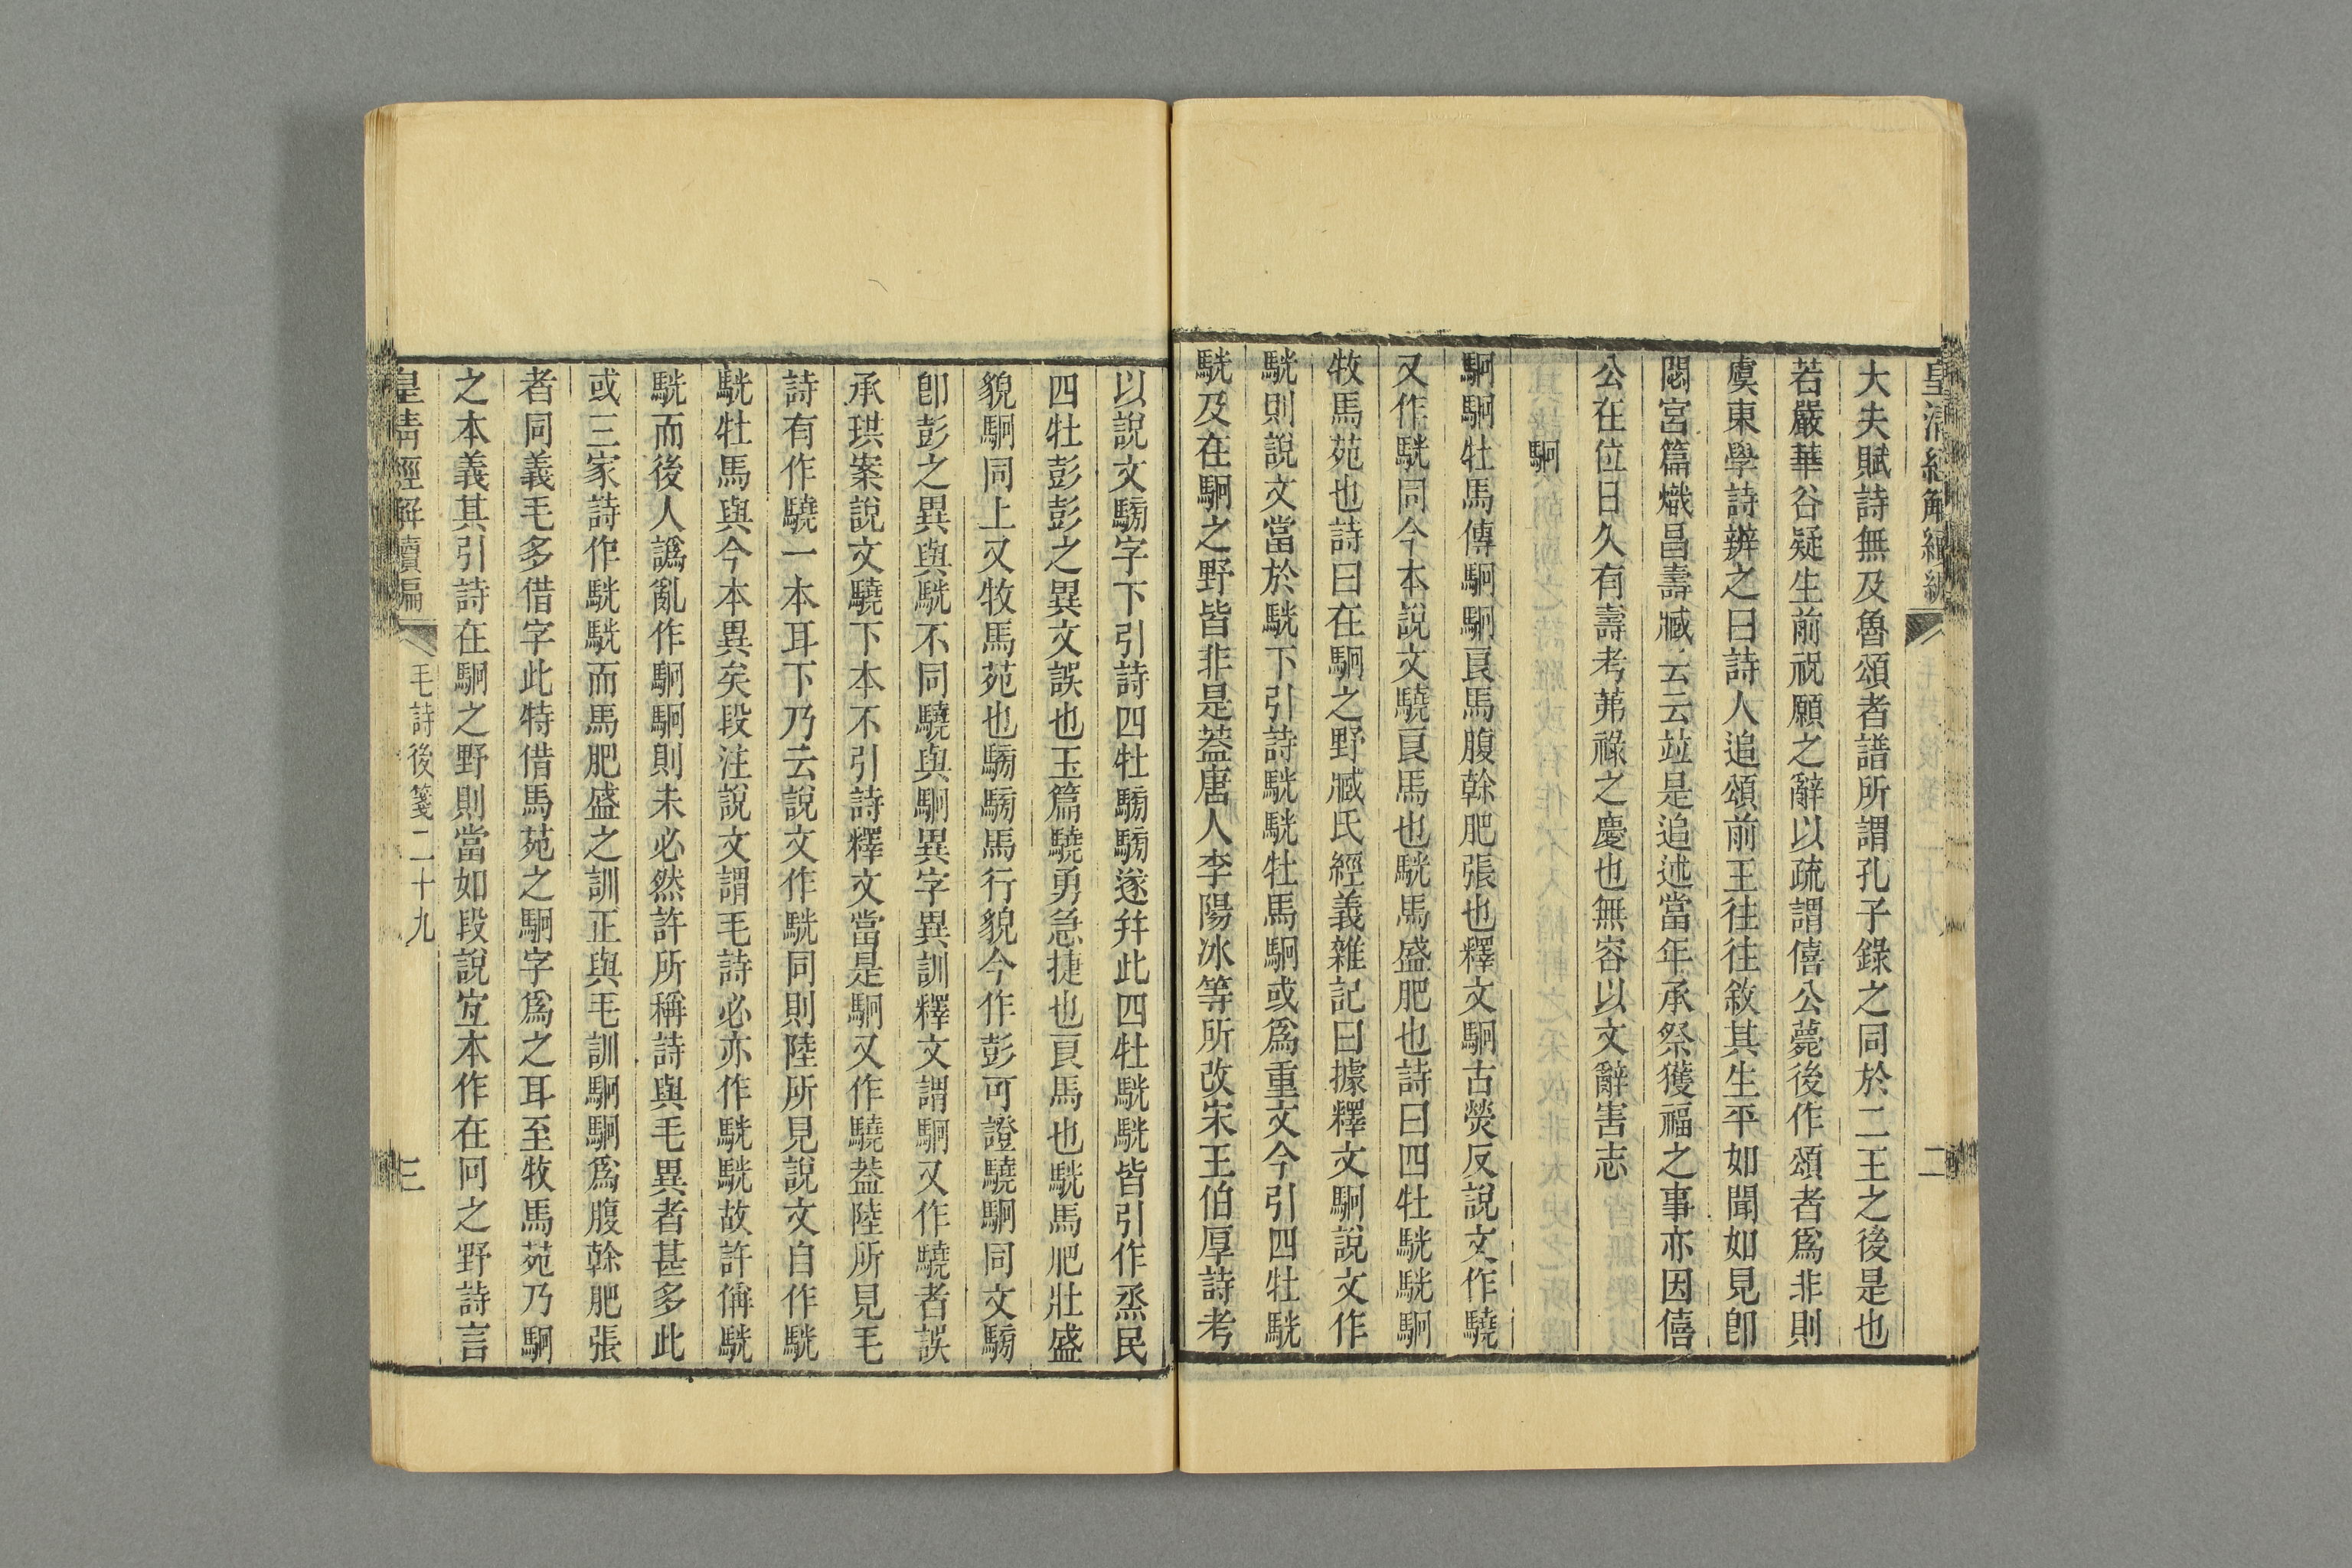 皇清經解續編
二
大夫賦詩無及魯頌者譜所謂孔子錄之同於二王之後是也
若嚴華谷疑生前祝願之辭以疏謂僖公薨後作頌者爲非則
虞東學詩辨之曰詩人追頌前王往往敘其生平如聞如見卽
閟宮篇熾昌壽臧云云竝是追述當年承祭獲福之事亦因僖
公在位日久有壽考茀祿之慶也無容以文辭害志
駉
駉駉牡馬傳駉駉良馬腹幹肥張也釋文駉古熒反說文作驍
又作駫同今本說文驍良馬也駫馬盛肥也詩曰四牡駫駫駉
牧馬苑也詩曰在駉之野臧氏經義雜記曰據釋文駉說文作
駫則說文當於駫下引詩駫駫牡馬駉或爲重文今引四牡駫
駫及在駉之野皆非是葢唐人李陽冰等所改宋王伯厚詩考
以說文騯字下引詩四牡騯騯遂幷此四牡駫駫皆引作烝民
四牡彭彭之異文誤也玉篇驍勇急捷也良馬也駫馬肥壯盛
貌駉同上又牧馬苑也騯騯馬行貌今作彭可證驍駉同文騯
卽彭之異與駫不同驍與駉異字異訓釋文謂駉又作驍者誤
承珙案說文驍下本不引詩釋文當是駉又作驍葢陸所見毛
詩有作驍一本耳下乃云說文作駫同則陸所見說文自作駫
駫牡馬與今本異矣段注說文謂毛詩必亦作駫駫故許偁駫
駫而後人譌亂作駉駉則未必然許所稱詩與毛異者甚多此
或三家詩作駫駫而馬肥盛之訓正與毛訓駉駉爲腹幹肥張
者同義毛多借字此特借馬苑之駉字爲之耳至牧馬苑乃駉
之本義其引詩在駉之野則當如段說宐本作在冋之野詩言
皇清經解續編
毛詩後箋二十九
三